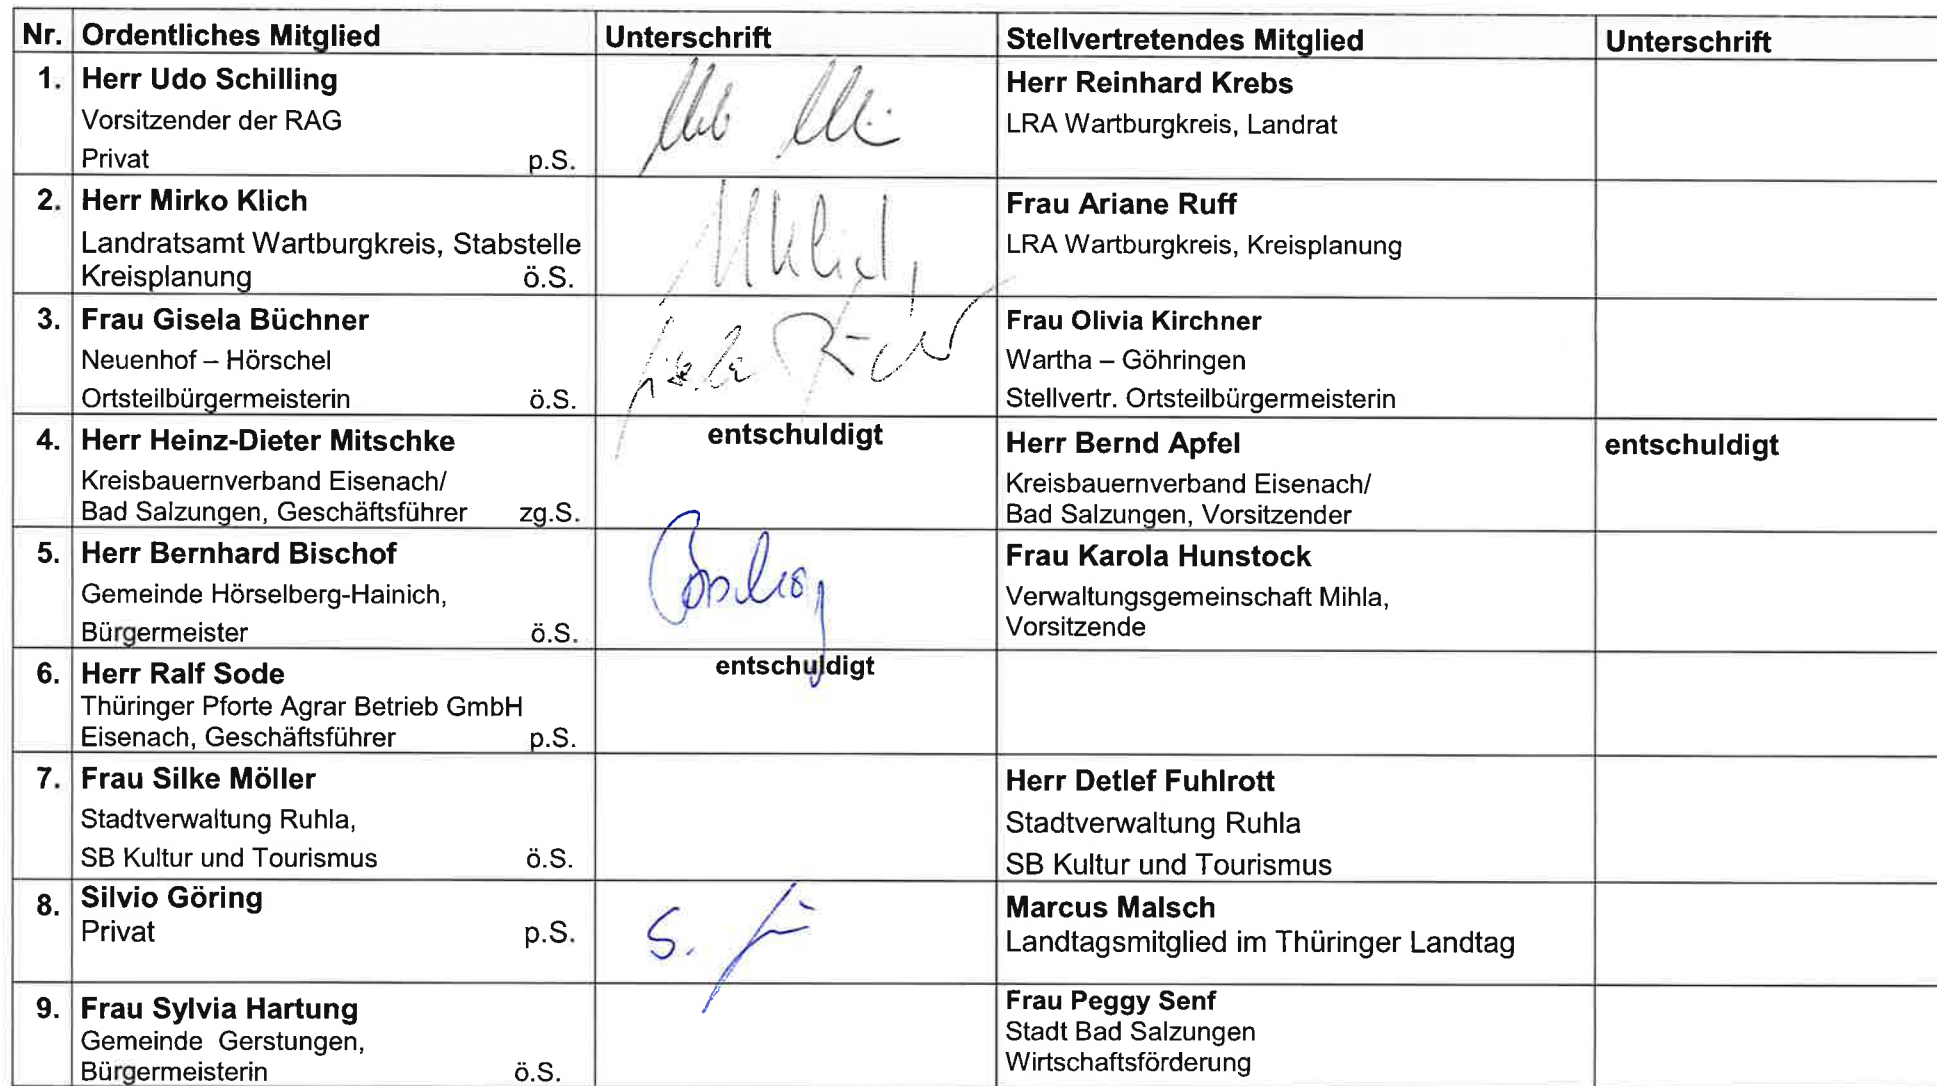 Nr. Ordentliches Mitglied Unterschrift Stellvertretendes Mitglied Unterschrift
1. Herr Udo Schilling
Vorsitzender der RAG
Privat p.S.
Herr Reinhard Krebs
LRA Wartburgkreis, Landrat
2. Herr Mirko Klich
Landratsamt Wartburgkreis, Stabstelle
Kreisplanung ö.S.
Frau Ariane Ruff
LRA Wartburgkreis, Kreisplanung
3. Frau Gisela Büchner
Neuenhof – Hörschel
Ortsteilbürgermeisterin ö.S.
Frau Olivia Kirchner
Wartha – Göhringen
Stellvertr. Ortsteilbürgermeisterin
4. Herr Heinz-Dieter Mitschke
Kreisbauernverband Eisenach/
Bad Salzungen, Geschäftsführer zg.S.
entschuldigt
Herr Bernd Apfel
Kreisbauernverband Eisenach/
Bad Salzungen, Vorsitzender
entschuldigt
5. Herr Bernhard Bischof
Gemeinde Hörselberg-Hainich,
Bürgermeister ö.S.
Frau Karola Hunstock
Verwaltungsgemeinschaft Mihla,
Vorsitzende
6. Herr Ralf Sode
Thüringer Pforte Agrar Betrieb GmbH
Eisenach, Geschäftsführer p.S.
entschuldigt
7. Frau Silke Möller
Stadtverwaltung Ruhla,
SB Kultur und Tourismus ö.S.
Herr Detlef Fuhlrott
Stadtverwaltung Ruhla
SB Kultur und Tourismus
8. Silvio Göring
Privat p.S.
S.
Marcus Malsch
Landtagsmitglied im Thüringer Landtag
9. Frau Sylvia Hartung
Gemeinde Gerstungen,
Bürgermeisterin ö.S.
Frau Peggy Senf
Stadt Bad Salzungen
Wirtschaftsförderung